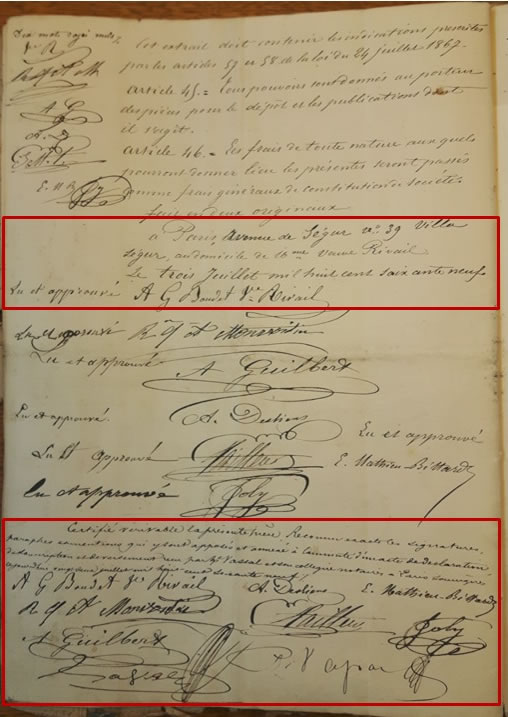 Dix mots rayés nuls
Cet extrait doit contenir les indications prescrites
par les articles 57 et 58 de la loi du 24 juillet 1867.
article 45. = Tous pouvoirs sont donnés au porteur
des pièces pour le dépôt et les publications dont
il s'agit.
A G
A. D
article 46. = Les frais de toute nature aux quels
pourront donner lieu les présentes seront passés
comme frais généraux de constitution de société.
E. M B
fait en deux originaux
a Paris, avenue de Ségur no. 39 Villa
Ségur, au domicile de Mme Veuve Rivail
Le trois Juillet mil huit cent soixante neuf
Lu et approuvé A G Boudet Ve Rivail
Lu et approuvé
Lu et approuvé A Guilbert
Lu et approuvé A. Desliens
Lu et approuvé
Lu et approuvé E. Mathieu Bittard
Lu et approuvé Joly
Certifié véritable la présente pièce Reconnu exacts les signatures,
paraphes et mentions qui y sont apposés et annexé à la minute d'un acte de déclaration
de souscription et de versement reçu par Me Vassal et son collègue notaires à Paris soussignés
A G Boudet Ve Rivail A. Desliens E. Mathieu Bittard
A Guilbert Joly